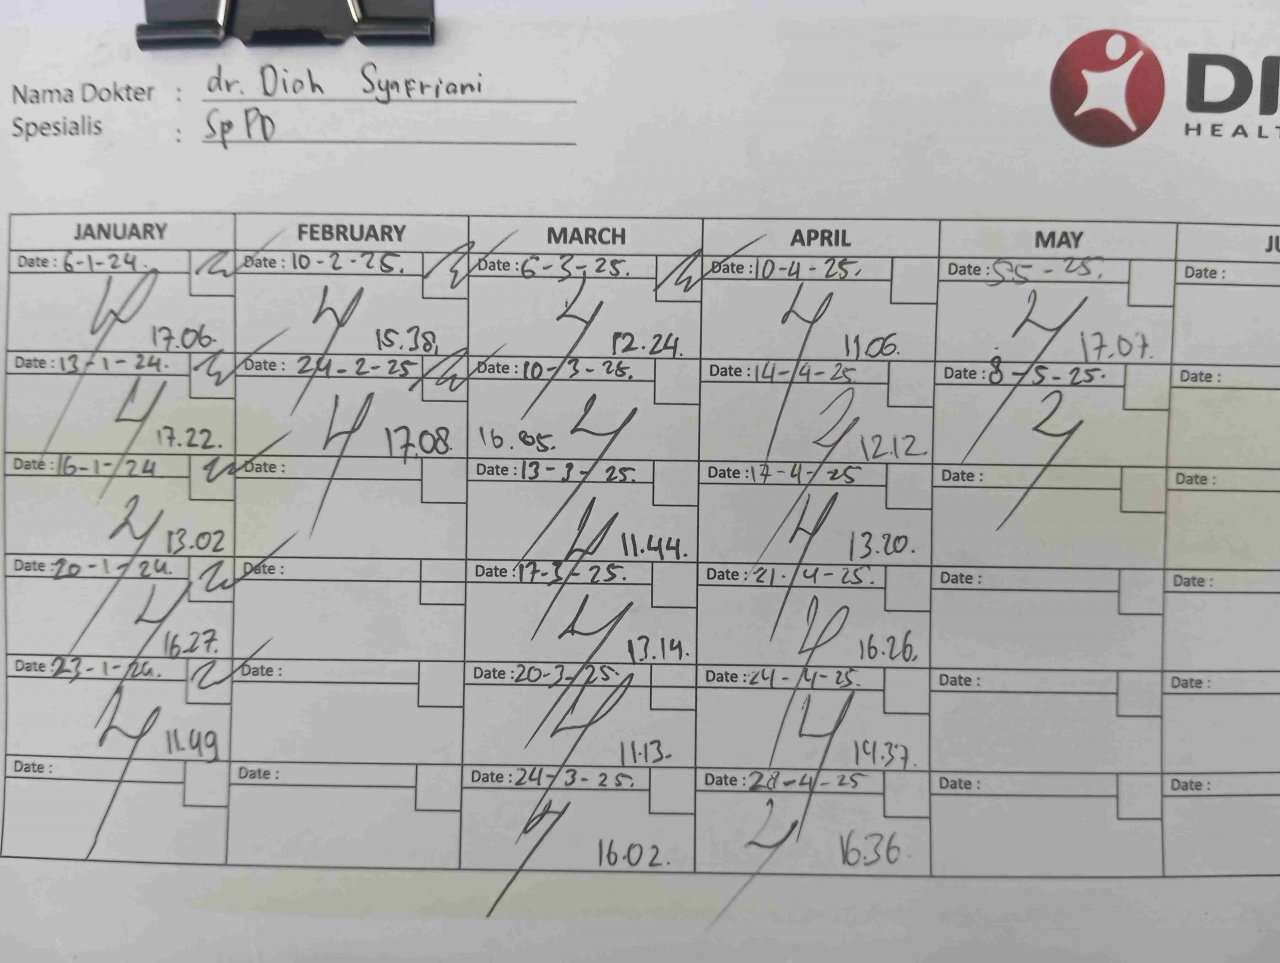 Nama Dokter : dr. Diah Syafriani
Spesialis : Sp PD
DI
HEALT
JANUARY FEBRUARY MARCH APRIL MAY JU
Date : 6-1-24. Date : 10-2-25. Date : 6-3-25. Date : 10-4-25. Date : 5-5-25. Date :
17.06. 15.38. 12.24. 11.06. 17.07.
Date : 13-1-24. Date : 24-2-25 Date : 10-3-25. Date : 14-4-25 Date : 8-5-25. Date :
17.22. 17.08. 16.05. 12.12.
Date : 16-1-24 Date : Date : 13-3-25. Date : 17-4-25 Date : Date :
13.02 11.44. 13.20.
Date : 20-1-24. Date : Date : 17-3-25. Date : 21-4-25. Date : Date :
16.27. 13.14. 16.26.
Date : 23-1-24. Date : Date : 20-3-25. Date : 24-4-25. Date : Date :
11.49 11.13. 14.37.
Date : Date : Date : 24-3-25. Date : 28-4-25 Date : Date :
16.02. 16.36.